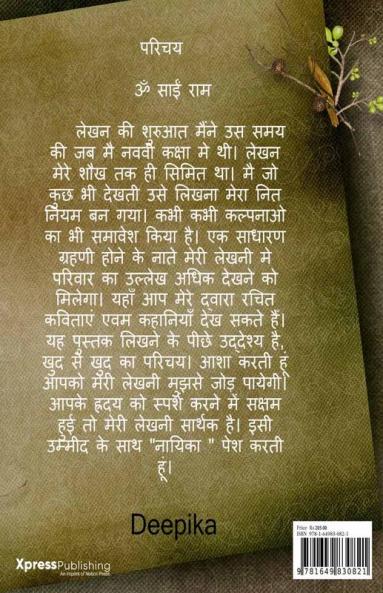 परिचय
ॐ साईं राम
लेखन की शुरुआत मैंने उस समय
की जब मै नववी कक्षा मे थी। लेखन
मेरे शौख तक ही सिमित था। मै जो
कुछ भी देखती उसे लिखना मेरा नित
नियम बन गया। कभी कभी कल्पनाओ
का भी समावेश किया है। एक साधारण
ग्रहणी होने के नाते मेरी लेखनी मे
परिवार का उल्लेख अधिक देखने को
मिलेगा। यहाँ आप मेरे द्वारा रचित
कविताएं एवम कहानियाँ देख सकते हैं।
यह पुस्तक लिखने के पीछे उद्देश्य है,
खुद से खुद का परिचय। आशा करती हूं
आपको मेरी लेखनी मुझसे जोड़ पायेगी।
आपके ह्रदय को स्पर्श करने में सक्षम
हुई तो मेरी लेखनी सार्थक है। इसी
उम्मीद के साथ "नायिका " पेश करती
हूं।
Deepika
XpressPublishing
An imprint of Notion Press
Price Rs 205.00
ISBN 978-1-64983-082-1
9 781649 830821